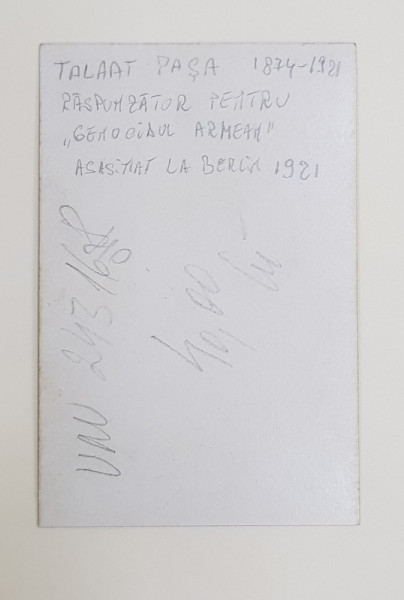 TALAAT PAŞA 1874-1921
RĂSPUNZĂTOR PENTRU
„GENOCIDUL ARMEAN"
ASASINAT LA BERLIN 1921
243 168